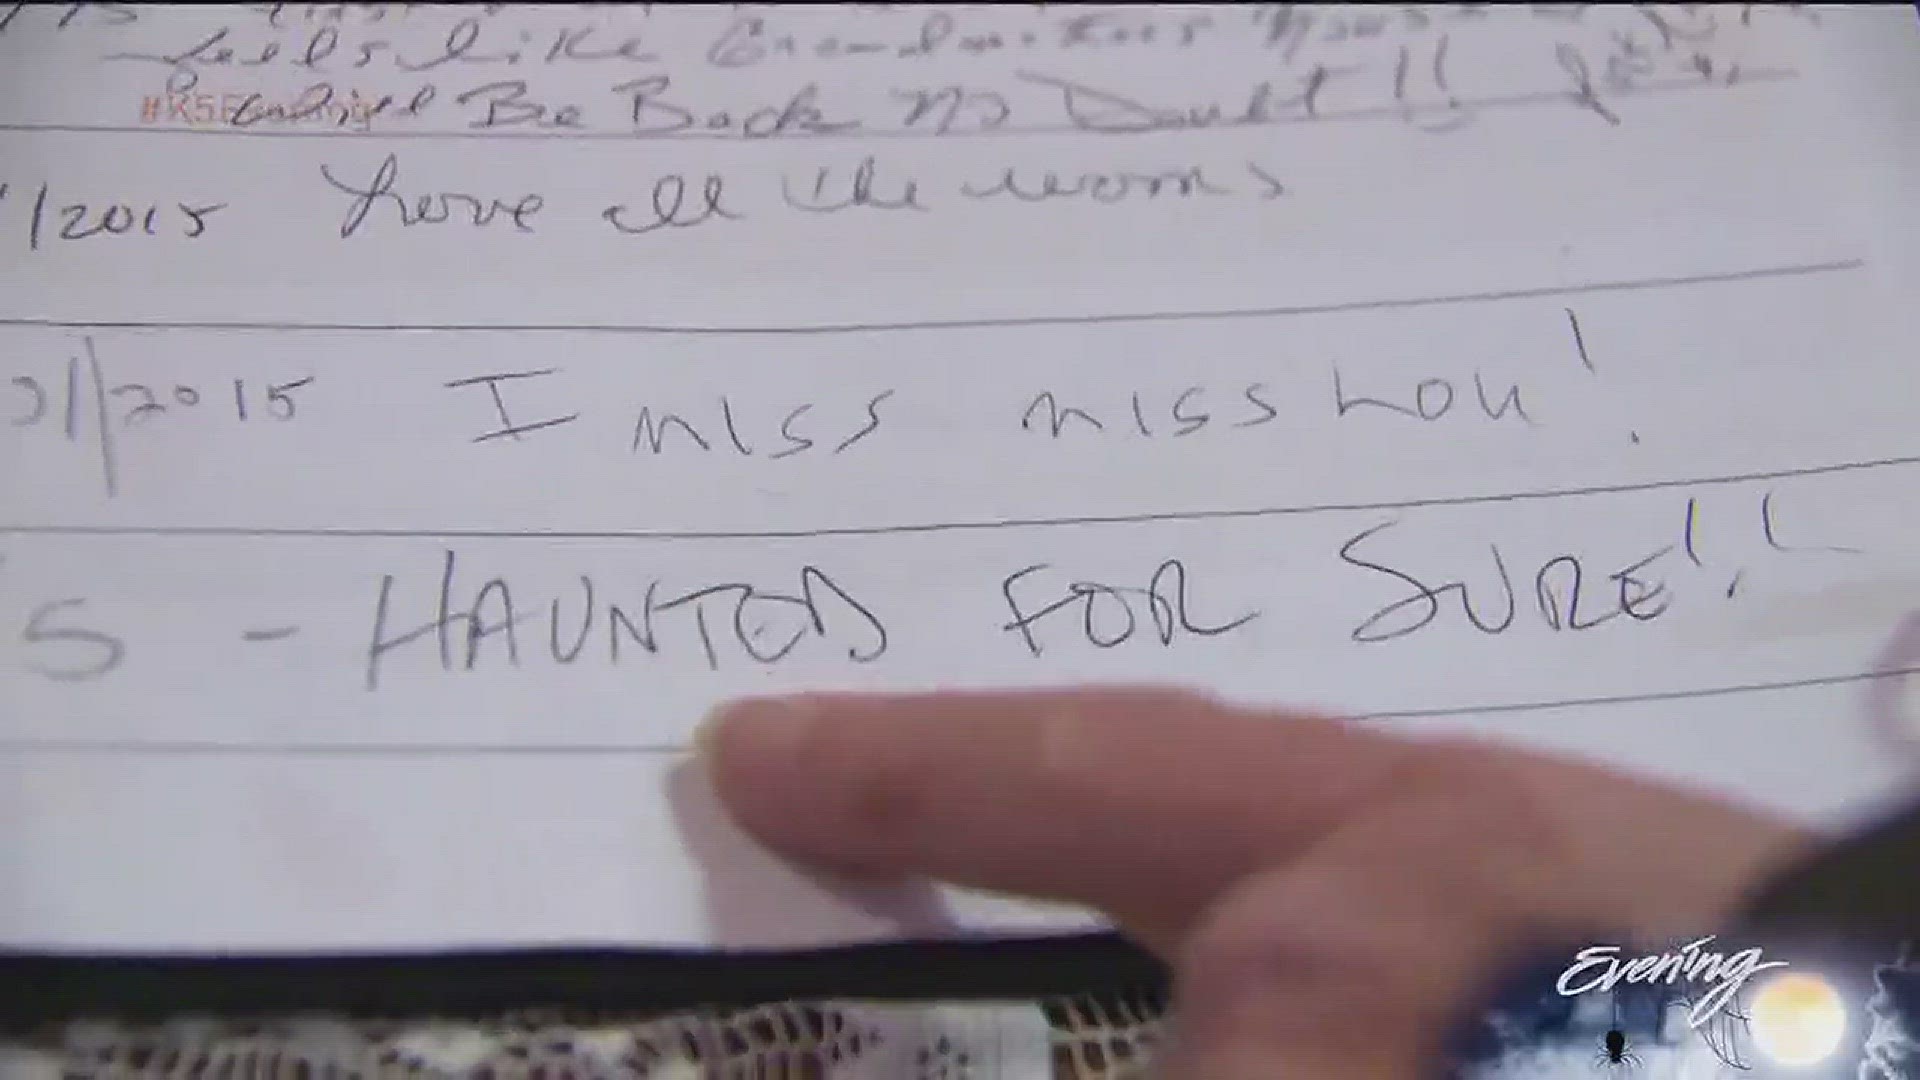 Feels like Grandmothers House
#K5Evening Be Back No Doubt!!
/2015 Love all the rooms
01/2015 I miss miss Lou!
5 - HAUNTED FOR SURE!!
Evening